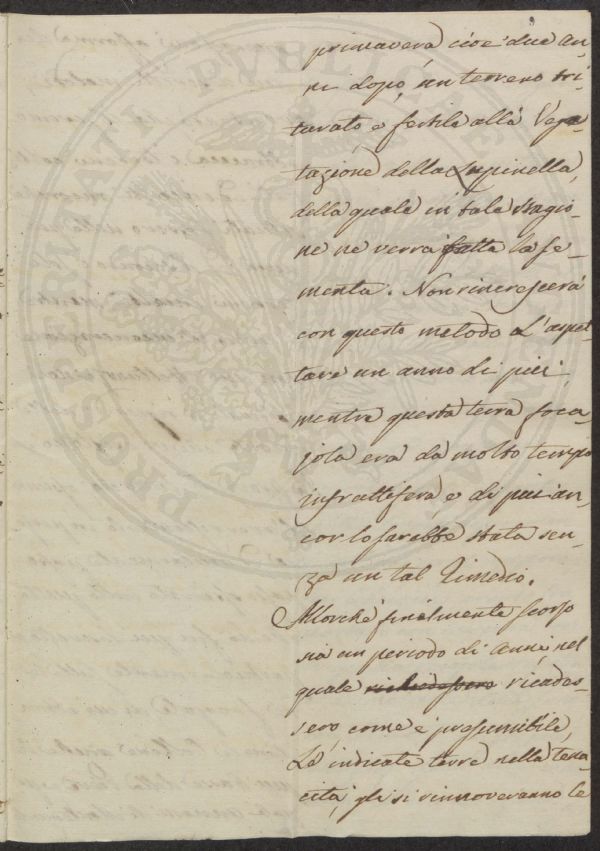 primavera, cioè due an-
ni dopo, un terreno tri-
turato, e fertile alla Vege-
tazione della Lupinella,
della quale in tale stagio-
ne ne verrà fatta la se-
menta. Non rincrescerà
con questo metodo L'aspet-
tare un anno di più,
mentre questa terra foca-
jola era da molto tempo
infruttifera, e di più an-
cor lo sarebbe stata sen-
za un tal Rimedio.
Allorchè finalmente scorso
sia un periodo di Anni, nel
quale ricades-
sero, come è presumibile,
Le indicate terre nella tena-
cità, gli si rinnoveranno le